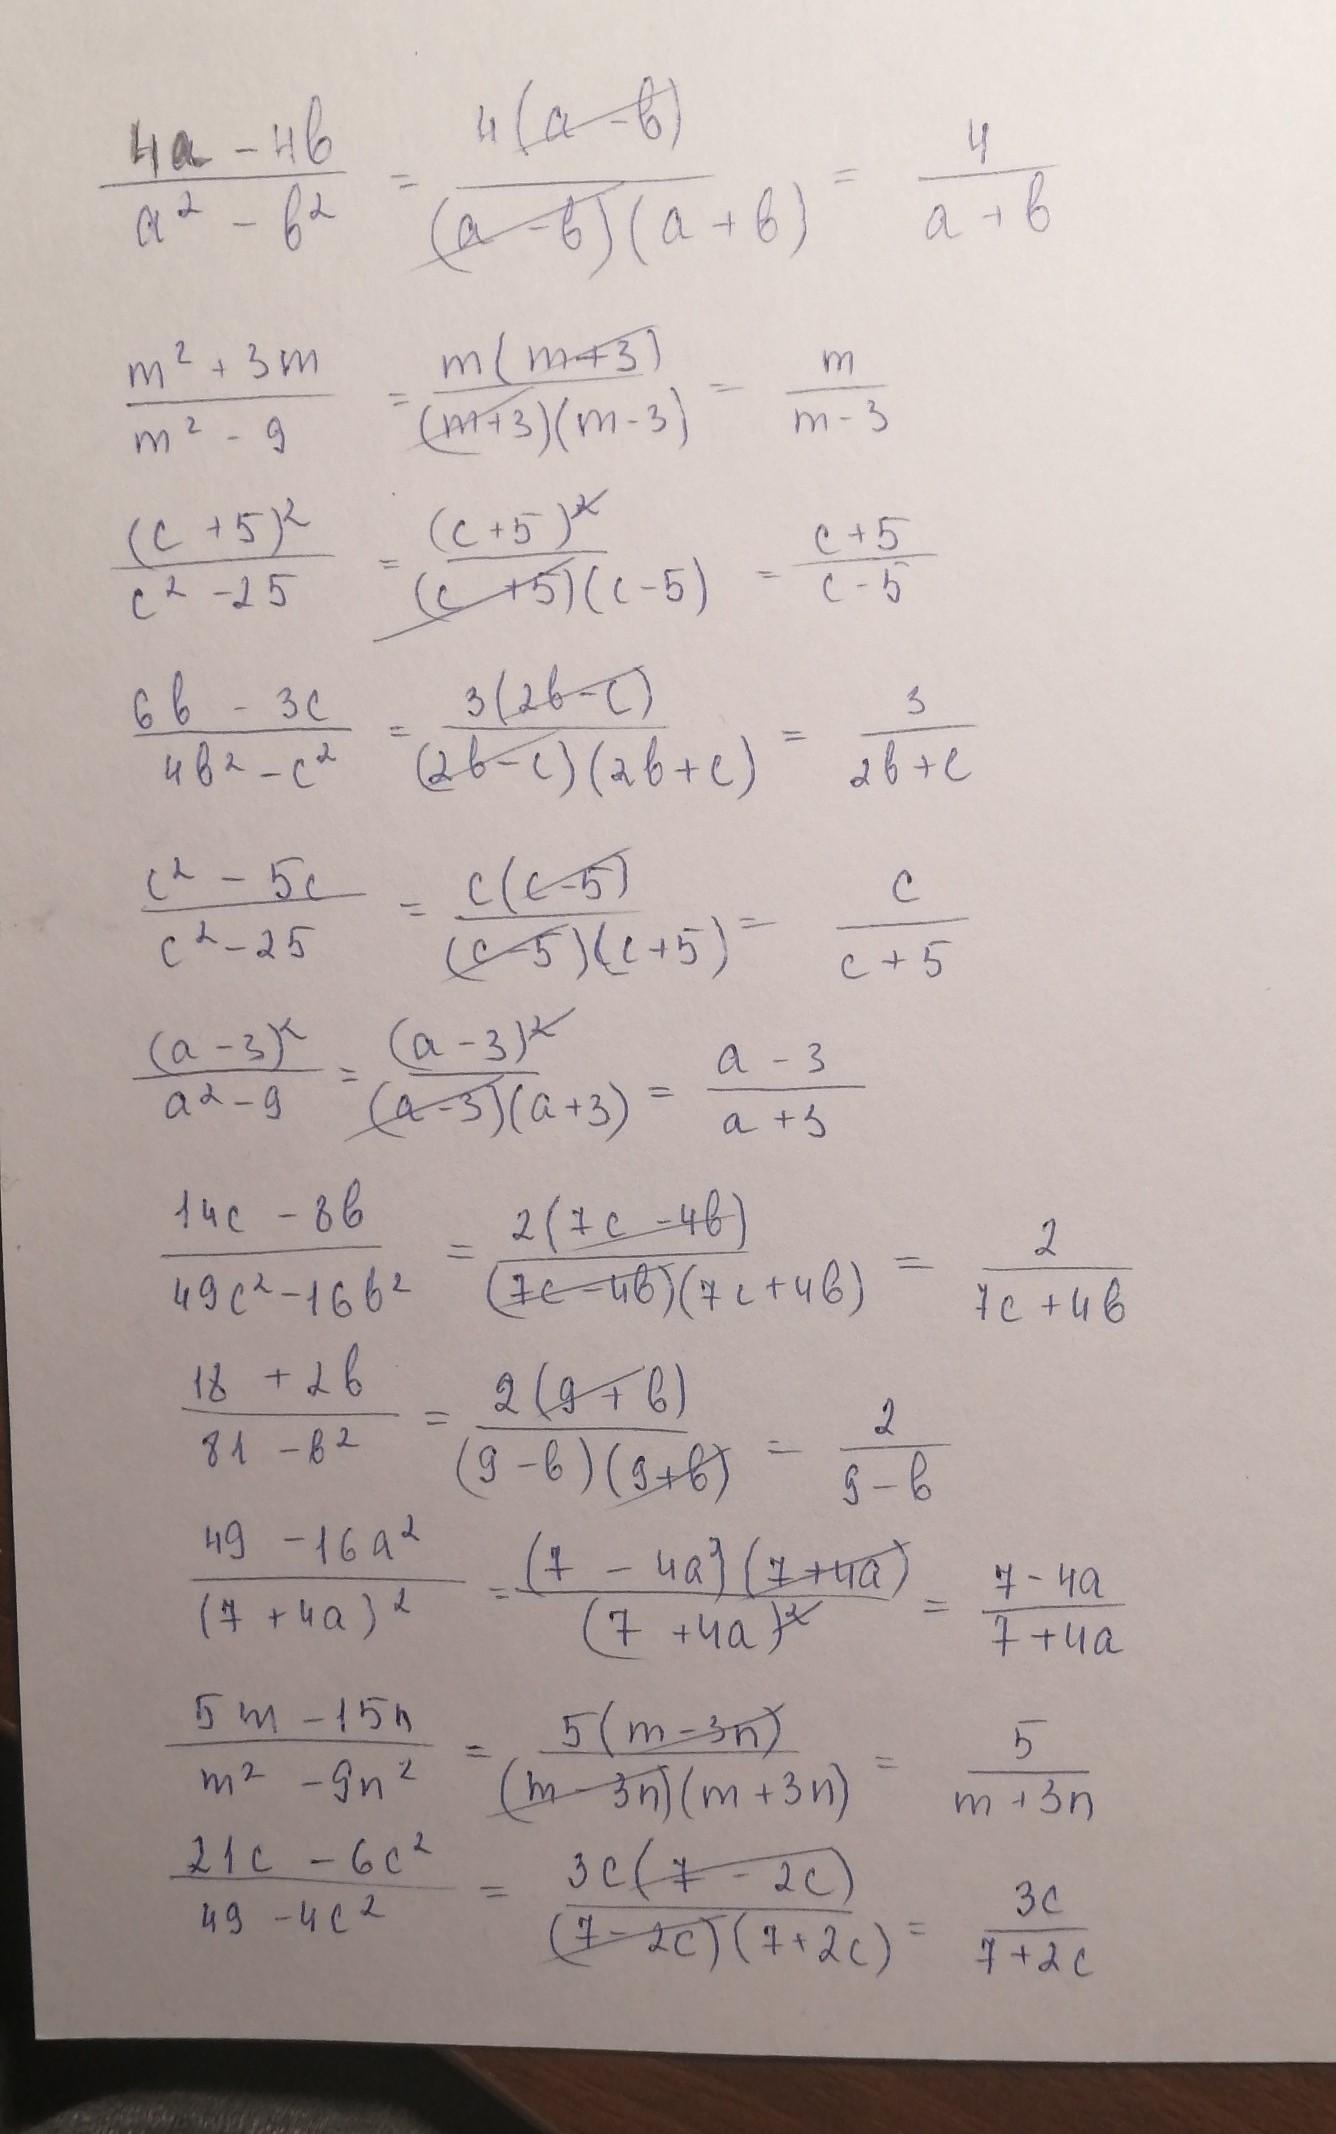 (4a - 4b)/(a² - b²) = 4(a - b)/((a - b)(a + b)) = 4/(a + b)
(m² + 3m)/(m² - 9) = m(m+3)/((m+3)(m-3)) = m/(m-3)
(c + 5)²/(c² - 25) = (c+5)²/((c+5)(c-5)) = (c+5)/(c-5)
(6b - 3c)/(4b² - c²) = 3(2b-c)/((2b-c)(2b+c)) = 3/(2b+c)
(c² - 5c)/(c² - 25) = c(c-5)/((c-5)(c+5)) = c/(c+5)
(a-3)²/(a² - 9) = (a-3)²/((a-3)(a+3)) = (a-3)/(a+3)
(14c - 8b)/(49c² - 16b²) = 2(7c - 4b)/((7c-4b)(7c+4b)) = 2/(7c+4b)
(18 + 2b)/(81 - b²) = 2(9+b)/((9-b)(9+b)) = 2/(9-b)
(49 - 16a²)/(7+4a)² = (7 - 4a)(7+4a)/(7+4a)² = (7-4a)/(7+4a)
(5m - 15n)/(m² - 9n²) = 5(m-3n)/((m-3n)(m+3n)) = 5/(m+3n)
(21c - 6c²)/(49 - 4c²) = 3c(7 - 2c)/((7-2c)(7+2c)) = 3c/(7+2c)